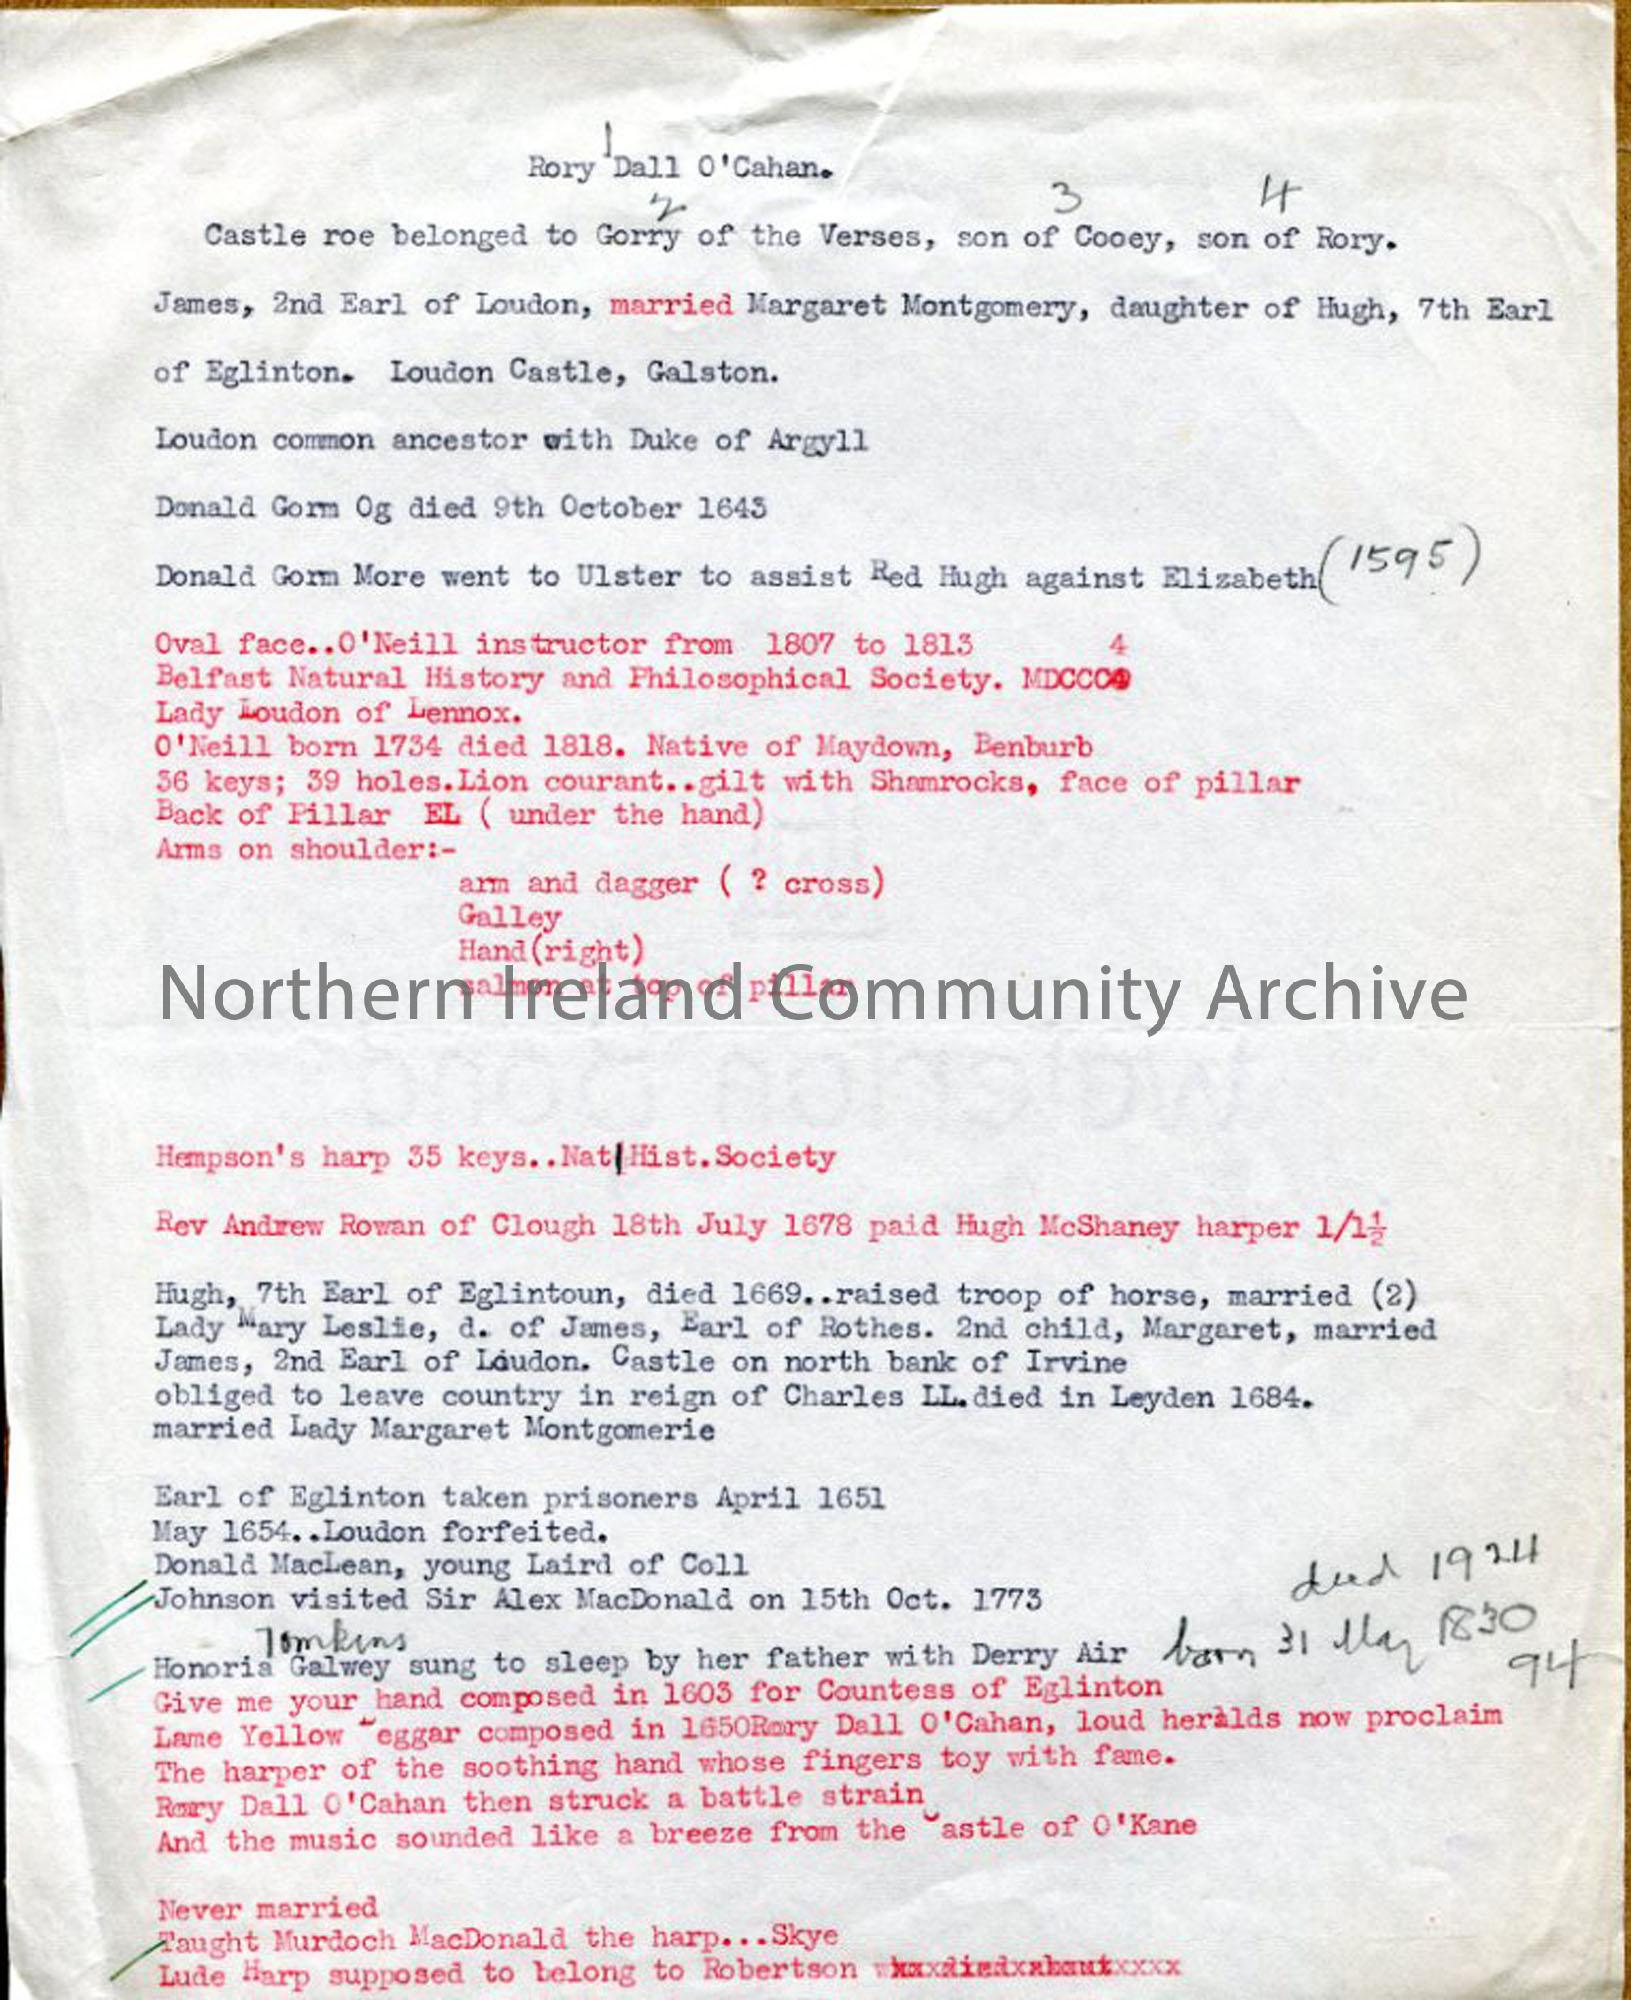 1
Rory Dall O'Cahan.
2 3 4
Castle roe belonged to Gorry of the Verses, son of Cooey, son of Rory.
James, 2nd Earl of Loudon, married Margaret Montgomery, daughter of Hugh, 7th Earl
of Eglinton. Loudon Castle, Galston.
Loudon common ancestor with Duke of Argyll
Donald Gorm Og died 9th October 1643
Donald Gorm More went to Ulster to assist Red Hugh against Elizabeth (1595)
Oval face..O'Neill instructor from 1807 to 1813 4
Belfast Natural History and Philosophical Society. MDCCC
Lady Loudon of Lennox.
O'Neill born 1734 died 1818. Native of Maydown, Benburb
36 keys; 39 holes.Lion courant..gilt with Shamrocks, face of pillar
Back of Pillar EL ( under the hand)
Arms on shoulder:-
arm and dagger ( ? cross)
Galley
Hand(right)
salmon at top of pillar
Northern Ireland Community Archive
Hempson's harp 35 keys..Nat Hist.Society
Rev Andrew Rowan of Clough 18th July 1678 paid Hugh McShaney harper 1/1½
Hugh, 7th Earl of Eglintoun, died 1669..raised troop of horse, married (2)
Lady Mary Leslie, d. of James, Earl of Rothes. 2nd child, Margaret, married
James, 2nd Earl of Loudon. Castle on north bank of Irvine
obliged to leave country in reign of Charles LL.died in Leyden 1684.
married Lady Margaret Montgomerie
Earl of Eglinton taken prisoners April 1651
May 1654..Loudon forfeited.
Donald MacLean, young Laird of Coll
died 1924
Johnson visited Sir Alex MacDonald on 15th Oct. 1773
Tomkins
Honoria Galwey sung to sleep by her father with Derry Air born 31 May 1830
94
Give me your hand composed in 1603 for Countess of Eglinton
Lame Yellow Beggar composed in 1650Rory Dall O'Cahan, loud heralds now proclaim
The harper of the soothing hand whose fingers toy with fame.
Rory Dall O'Cahan then struck a battle strain
And the music sounded like a breeze from the Castle of O'Kane
Never married
Taught Murdoch MacDonald the harp...Skye
Lude Harp supposed to belong to Robertson